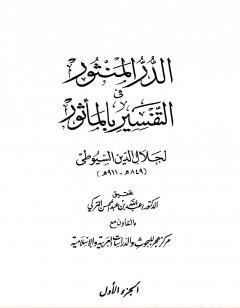 الدر المنثور
في
التفسير بالمأثور
لجلال الدين السيوطي
(٨٤٩هـ - ٩١١هـ)
تحقيق
الدكتور عبد الله بن عبد المحسن التركي
بالتعاون مع
مركز هجر للبحوث والدراسات العربية والإسلامية
الجزء الأول